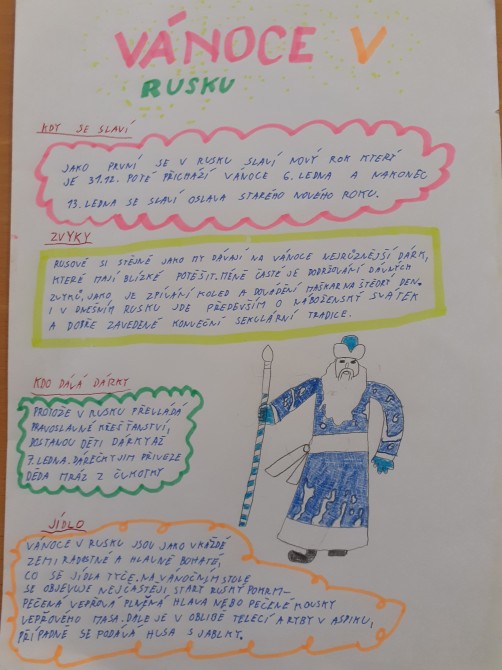 VÁNOCE V
RUSKU
KDY SE SLAVÍ
JAKO PRVNÍ SE V RUSKU SLAVÍ NOVÝ ROK KTERÝ
JE 31.12. POTÉ PŘICHÁZÍ VÁNOCE 6. LEDNA A NAKONEC
13. LEDNA SE SLAVÍ OSLAVA STARÉHO NOVÉHO ROKU.
ZVYKY
RUSOVÉ SI STEJNĚ JAKO MY DÁVAJÍ NA VÁNOCE NEJRŮZNĚJŠÍ DÁRK,
KTERÉ MAJÍ BLÍZKÉ POTĚŠIT. MÉNĚ ČASTÉ JE DODRŽOVÁNÍ DÁVNÝCH
ZVYKŮ, JAKO JE ZPÍVÁNÍ KOLED A DOVÁDĚNÍ MAŠKAR NA ŠTĚDRÝ DEN.
I V DNEŠNÍM RUSKU JDE PŘEDEVŠÍM O NÁBOŽENSKÝ SVÁTEK
A DOBŘE ZAVEDENÉ KONVEČNÍ SEKULÁRNÍ TRADICE.
KDO DÁVÁ DÁRKY
PROTOŽE V RUSKU PŘEVLÁDÁ
PRAVOSLAVNÉ KŘESŤANSTVÍ,
DOSTANOU DĚTI DÁRKY AŽ
7. LEDNA. DÁREČKY JIM PŘIVEZE
DĚDA MRÁZ Z ČUKOTKY
JÍDLO
VÁNOCE V RUSKU JSOU JAKO V KAŽDÉ
ZEMI RADOSTNÉ A HLAVNĚ BOHATÉ,
CO SE JÍDLA TÝČE. NA VÁNOČNÍM STOLE
SE OBJEVUJE NEJČASTĚJI STARÝ RUSKÝ POKRM-
PEČENÁ VEPŘOVÁ PLNĚNÁ HLAVA NEBO PEČENÉ KOUSKY
VEPŘOVÉHO MASA. DÁLE JE V OBLIBĚ TELECÍ A RYBY V ASPIKU,
PŘÍPADNĚ SE PODÁVÁ HUSA S JABLKY.